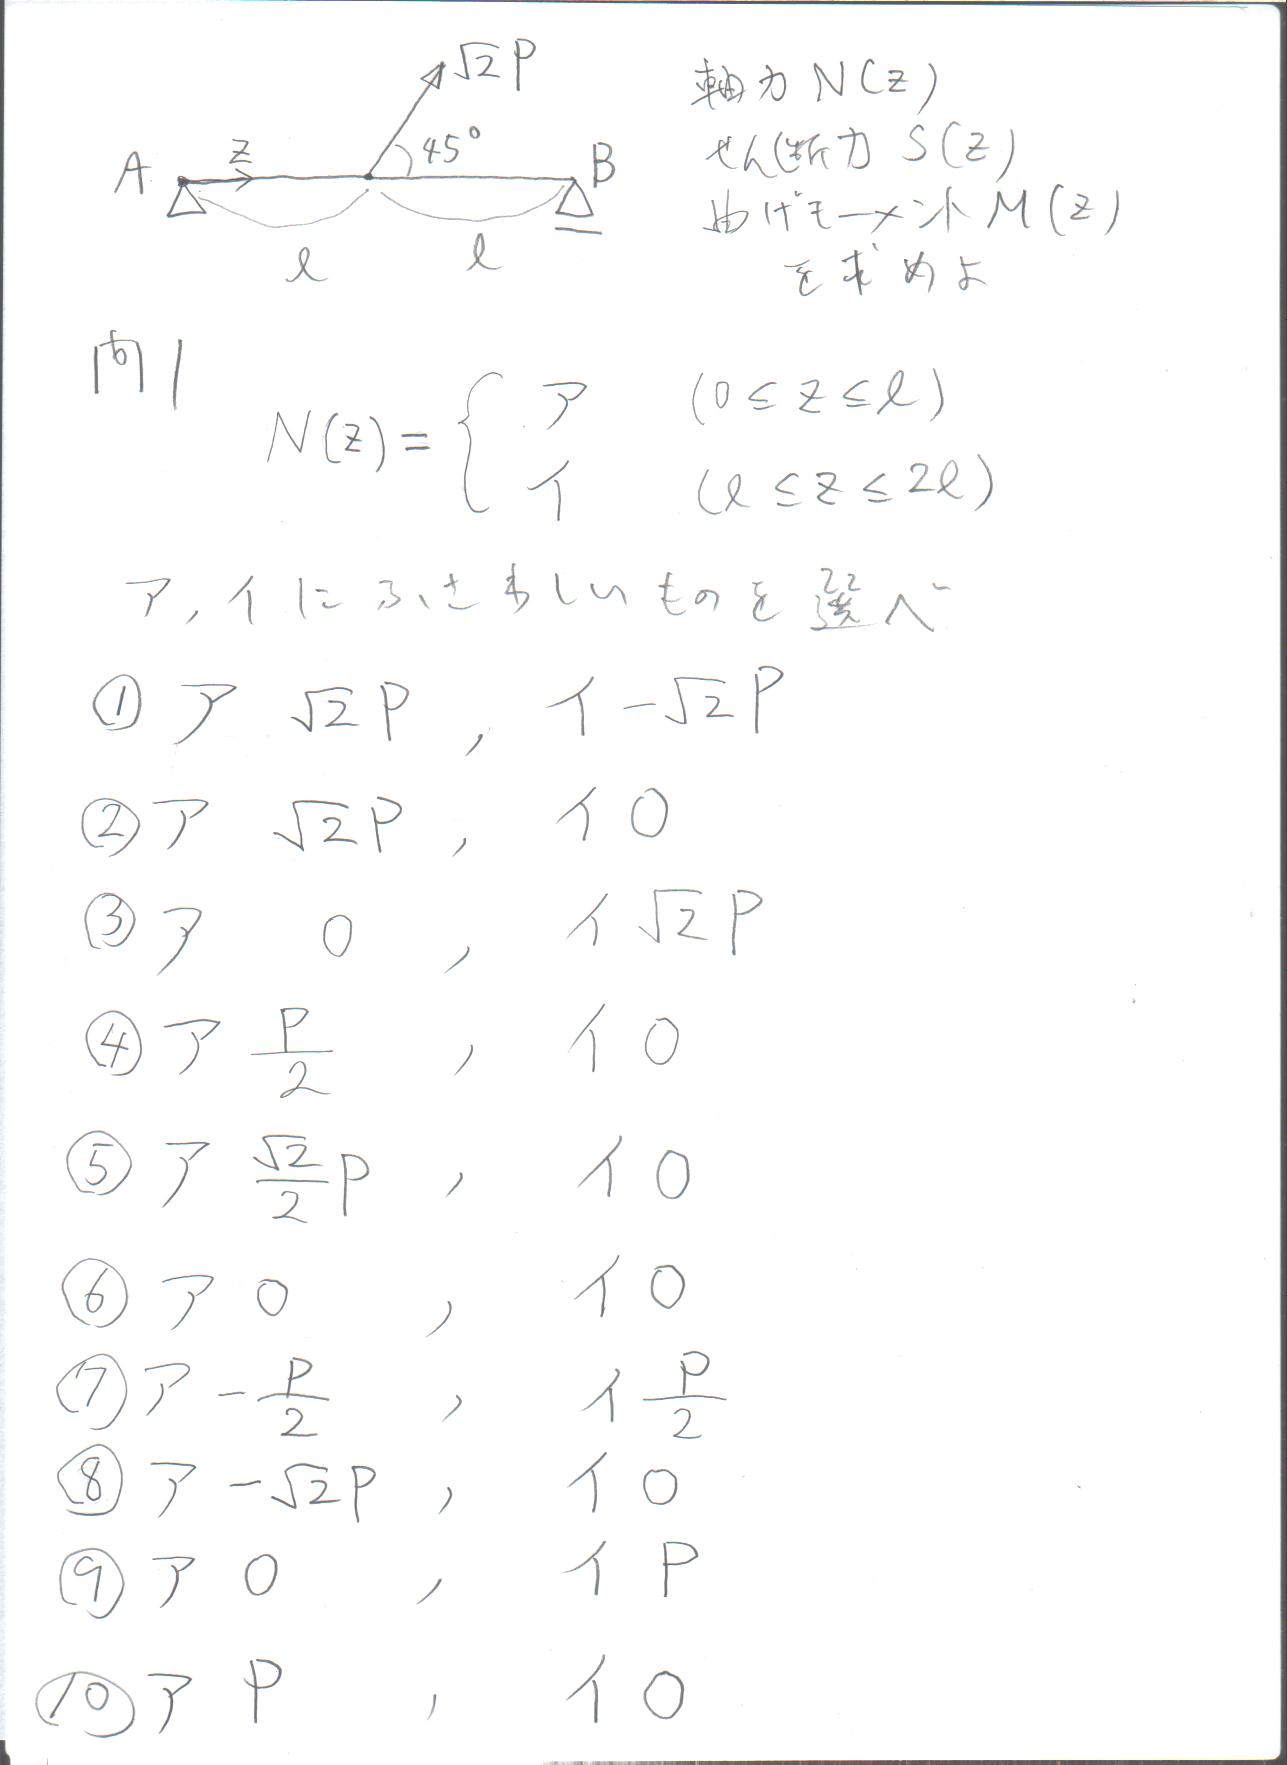 √2P
45°
A
z
B
l
l
軸力 N(z)
せん断力 S(z)
曲げモーメント M(z)
を求めよ
問1
N(z) = { ア (0 ≤ z ≤ l)
イ (l ≤ z ≤ 2l)
ア, イにふさわしいものを選べ
① ア √2P , イ -√2P
② ア √2P , イ 0
③ ア 0 , イ √2P
④ ア P/2 , イ 0
⑤ ア √2/2 P , イ 0
⑥ ア 0 , イ 0
⑦ ア -P/2 , イ P/2
⑧ ア -√2P , イ 0
⑨ ア 0 , イ P
⑩ ア P , イ 0